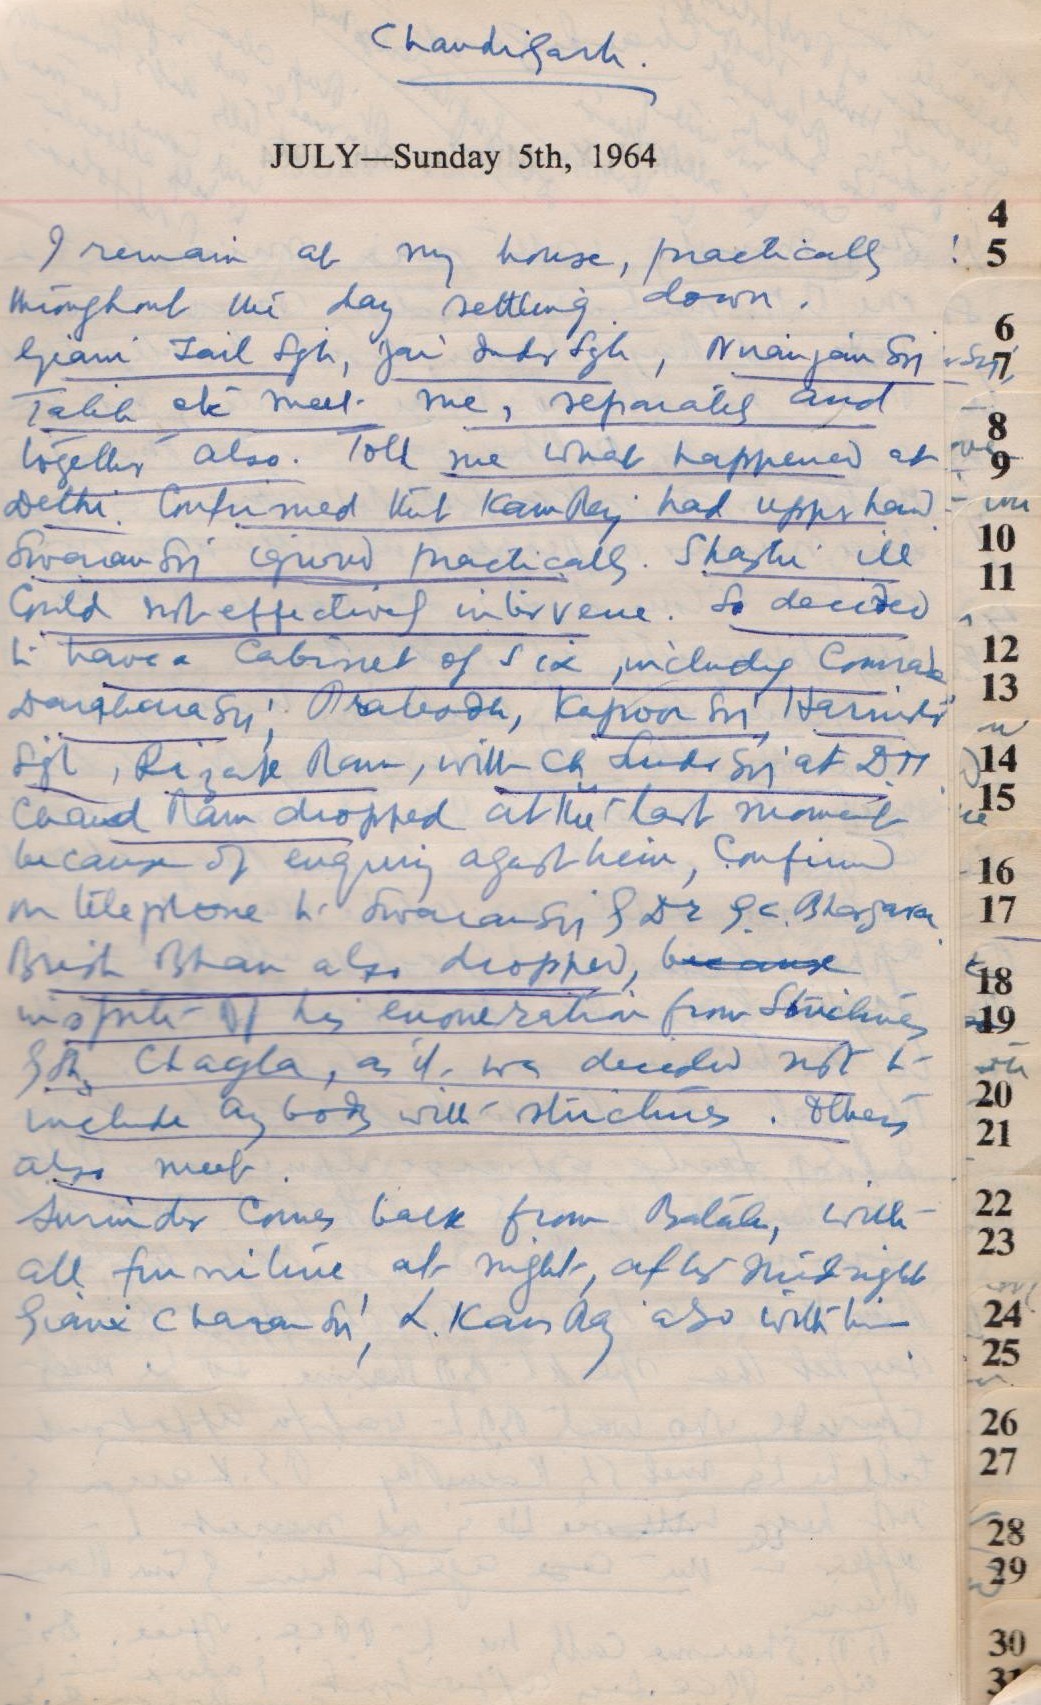 Chandigarh.
JULY—Sunday 5th, 1964
I remain at my house, practically
throughout the day settling down.
Giani Zail Sgh, Jai Inder Sgh, Niranjan Sgh
Talib etc meet me, separately and
together also. Told me what happened at
Delhi. Confirmed that Kam Raj had upper hand
Swaran Sgh ignored practically. Shastri ill
Could not effectively intervene. So decided
to have a Cabinet of Six, including Comrade
Darbara Sgh, Prabodh, Kapoor Sgh, Harinder
Sgh, Rizak Ram, with Ch. Inder Sgh at DM
Chand Ram dropped at the last moment
because of enquiry agst him, Confirmed
on telephone to Swaran Sgh & Dr G.C. Bhargava
Brish Bhan also dropped, because
inspite of his exoneration from Strictures
by Chagla, as it was decided not to
include any body with strictures. Others
also meet.
Surinder Comes back from Batala, with
all furniture at night, after Midnight
Giani Charan Sgh, L. Kans Raj also with him
4
5
6
7
8
9
10
11
12
13
14
15
16
17
18
19
20
21
22
23
24
25
26
27
28
29
30
31